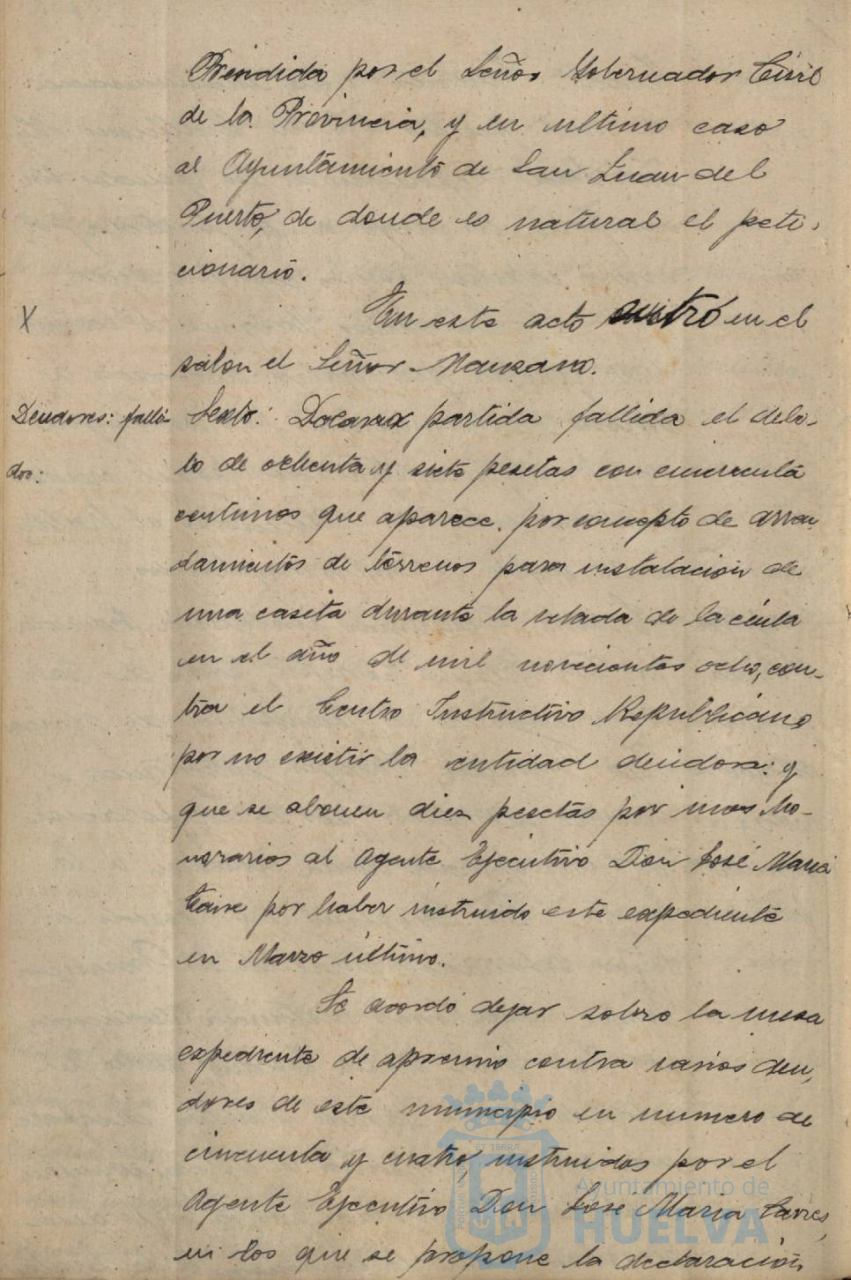 Presidida por el Señor Gobernador Civil
de la Provincia, y en ultimo caso
al Ayuntamiento de San Juan del
Puerto, de donde es natural el peti-
cionario.
En este acto entró en el
salon el Señor Manzano.
Deudores: falli-
dos:
Sexto: Declarar partida fallida el debi-
to de ochenta y siete pesetas con cincuenta
centimos que aparece, por concepto de arren
damientos de terrenos para instalacion de
una caseta durante la velada de la Cinta
en el año de mil novecientos ocho, con-
tra el Centro Instructivo Republicano
por no existir la entidad deudora: y
que se abonen diez pesetas por sus ho-
norarios al Agente Ejecutivo Don José Maria
por haber instruido este expediente
en Marzo último.
Se acordó dejar sobre la mesa
expediente de apremio contra varios deu-
dores de este municipio en numero de
cincuenta y cuatro, instruidos por el
Agente Ejecutivo Don José Maria
en los que se propone la declaración
Ayuntamiento de
HUELVA